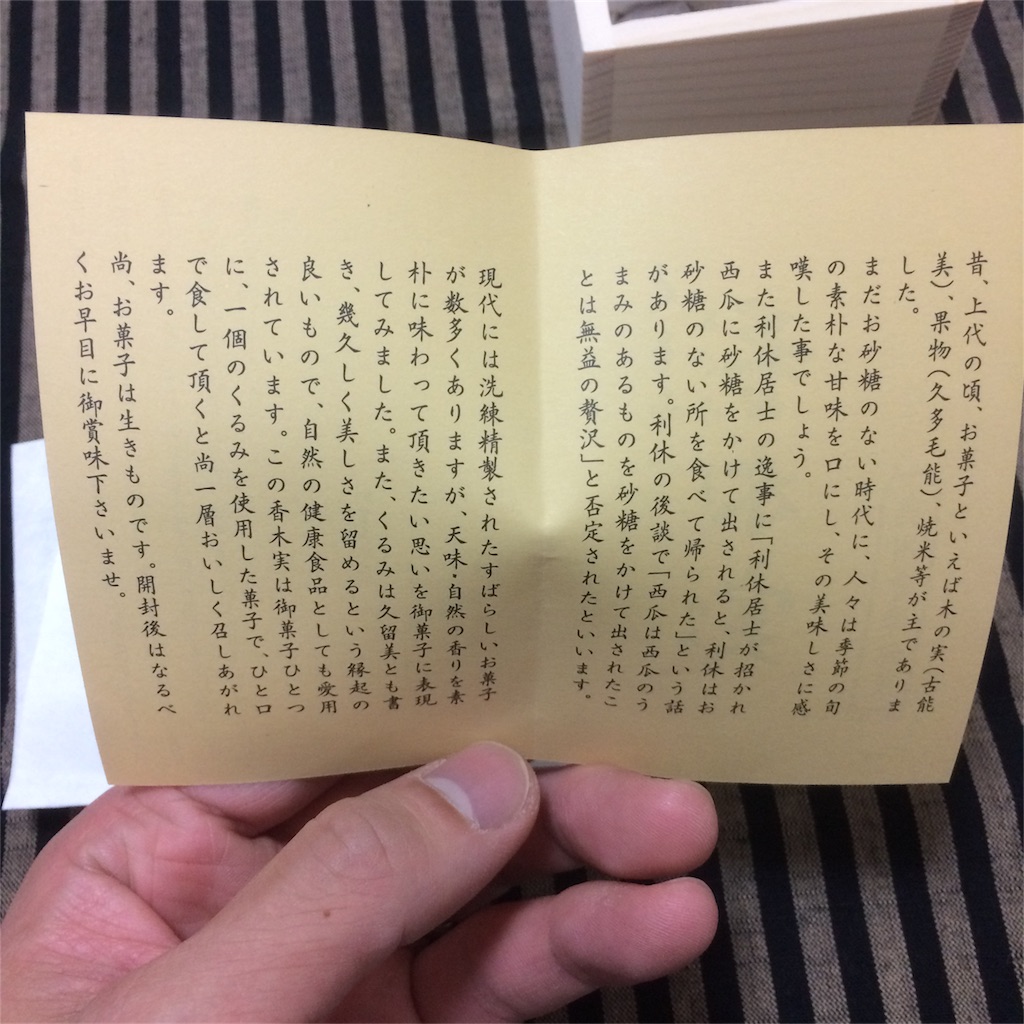 昔、上代の頃、お菓子といえば木の実（古能
美）、果物（久多毛能）、焼米等が主でありま
した。
まだお砂糖のない時代に、人々は季節の旬
の素朴な甘味を口にし、その美味しさに感
嘆した事でしょう。
また利休居士の逸事に「利休居士が招かれ
西瓜に砂糖をかけて出されると、利休はお
砂糖のない所を食べて帰られた」という話
があります。利休の後談で「西瓜は西瓜のう
まみのあるものを砂糖をかけて出されたこ
とは無益の贅沢」と否定されたといいます。
現代には洗練精製されたすばらしいお菓子
が数多くありますが、天味・自然の香りを素
朴に味わって頂きたい思いを御菓子に表現
してみました。また、くるみは久留美とも書
き、幾久しく美しさを留めるという縁起の
良いもので、自然の健康食品としても愛用
されています。この香木実は御菓子ひとつ
に、一個のくるみを使用した菓子で、ひと口
で食して頂くと尚一層おいしく召しあがれ
ます。
尚、お菓子は生きものです。開封後はなるべ
くお早目に御賞味下さいませ。